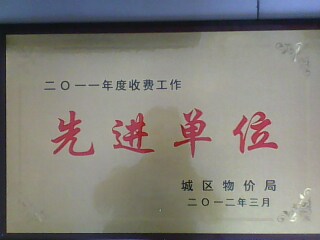 二〇一一年度收费工作
先进单位
城区物价局
二〇一二年三月